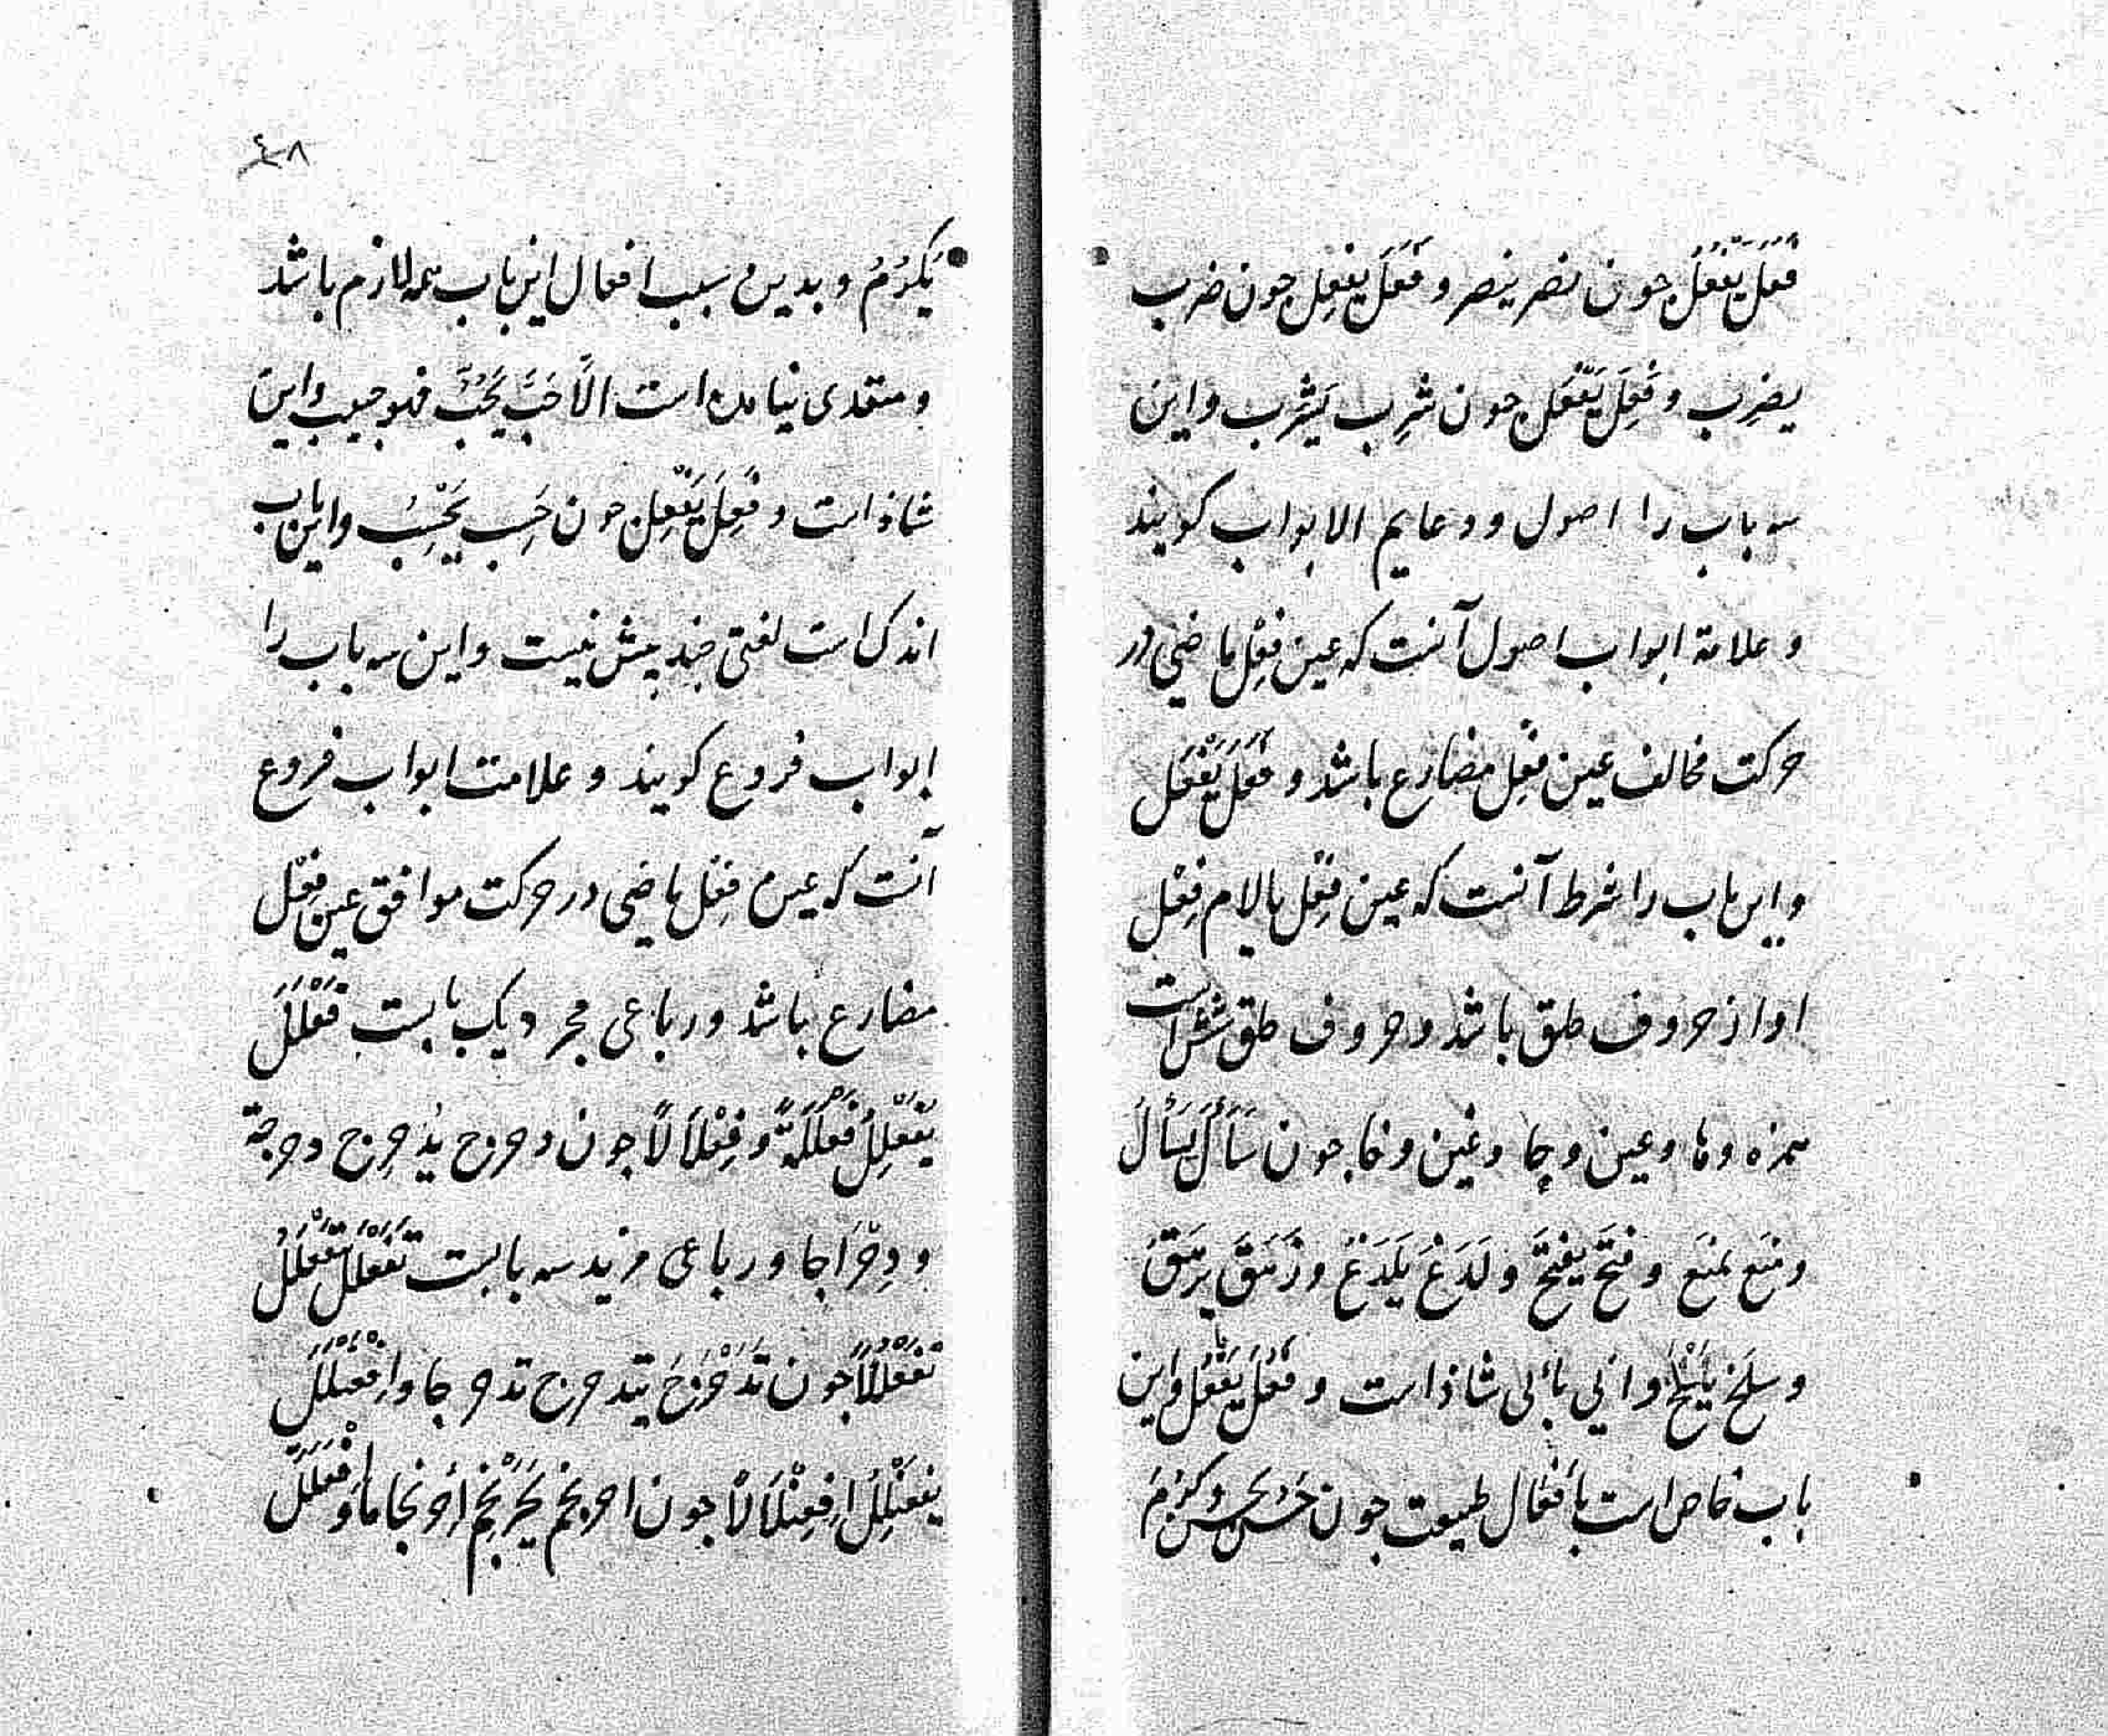 فَعَلَ يَفْعُلُ جون نصر ينصر و فَعَلَ يفعِل جون ضرب
يضرِب و فَعِلَ يَفْعَل جون شرِب يَشرب و اين
سه باب را اصول و دعايم الابواب كويند
و علامة ابواب اصول آنست كه عين فِعْل ماضي در
حركت مخالف عين فِعْل مضارع باشد و فَعَلَ يَفْعَل
و اين باب را شرط آنست كه عين فِعْل يا لام فِعْل
او از حروف حلق باشد و حروف حلق شش است
همزه و ها و عين و حا و غين و خا جون سَأَلَ يَسْأَلُ
و منَع يمنَع و فتَحَ يفتَحُ و لَدَغَ يَلْدَغُ و زَهَقَ يزهَقُ
و سلَخ يَسْلَخُ و ابي يأبى شاذ است و فَعُلَ يَفْعُل و اين
باب خاص است بأفعال طبيعت جون حَسُن يحسُن و كَرُمَ
٤٨
يَكرُمُ و بدين سبب افعال اين باب همه لازم باشد
و متعدى نيامده است الّا حَبَّ يَحُبُّ فهو حبيب و اين
شاذ است و فَعِلَ يَفْعِل جون حَسِب يَحْسِبُ و اين باب
اندك است لغتى جند بيش نيست و اين سه باب را
ابواب فروع كويند و علامت ابواب فروع
آنست كه عين فِعْل ماضى در حركت موافق عين فِعْل
مضارع باشد و رباعى مجرد يك بابست فَعْلَلَ
يُفَعْلِلُ فَعْلَلَةً و فِعْلَالًا جون دحرج يدَحرِج دحرجة
و دِحْرَاجا و رباعى مزيد سه بابست تَفَعْلَلَ يَتَفَعْلَلُ
تَفَعْلُلًا جون تَدَحْرَجَ يتدحرج تدحرجا و اِفْعَنْلَلَ
يفعَنْلِلُ اِفعِنْلَالًا جون احرنجم يَحْرَنْجِمُ اِحرنجاما و اِفْعَلَلَّ